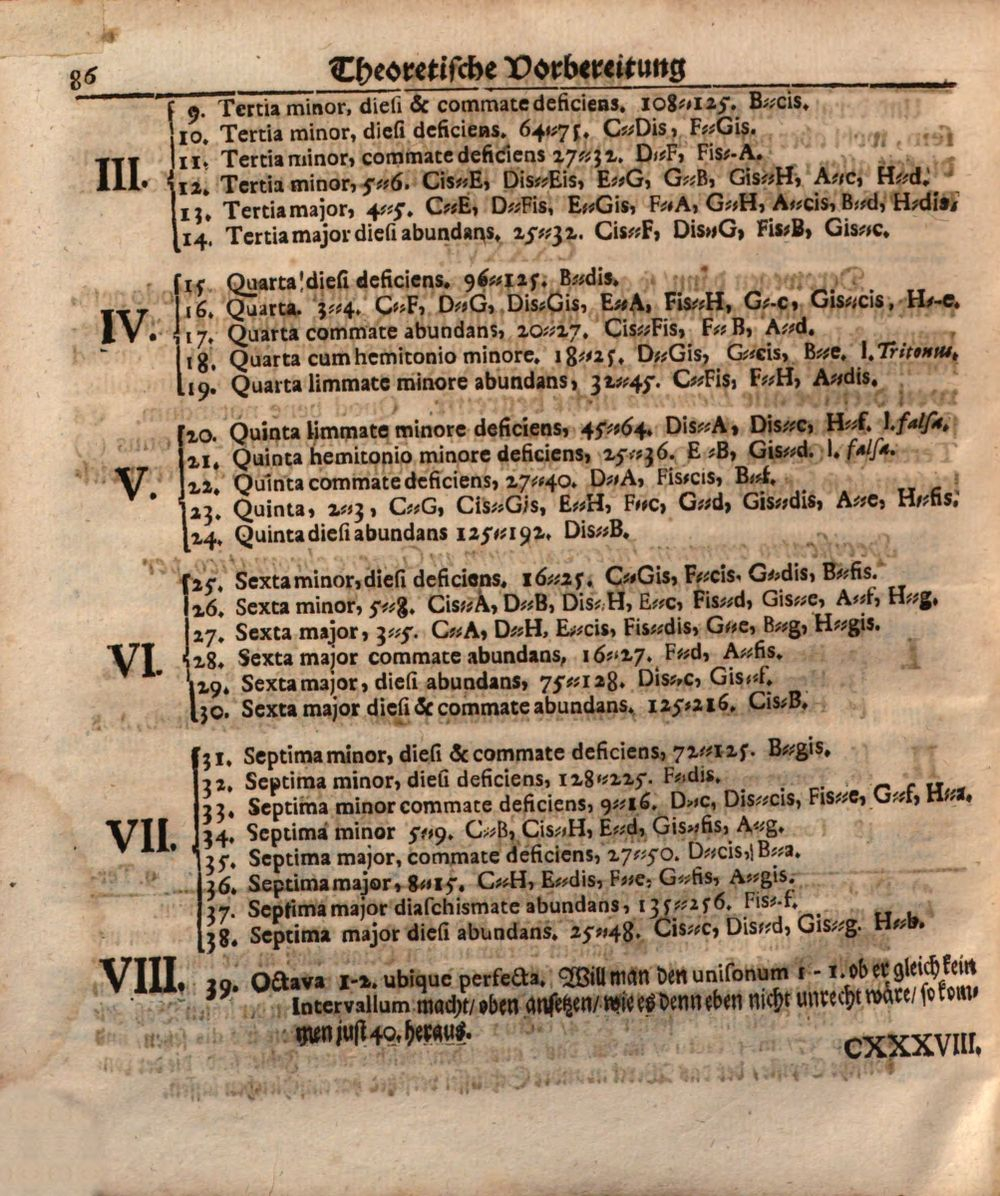 86 Theoretische Vorbereitung
9. Tertia minor, diesi & commate deficiens. 108⸗125. B⸗cis.
10. Tertia minor, diesi deficiens. 64⸗75. C⸗Dis, F⸗Gis.
III. 11. Tertia minor, commate deficiens 27⸗32. D⸗F, Fis⸗A.
12. Tertia minor, 5⸗6. Cis⸗E, Dis⸗Eis, E⸗G, G⸗B, Gis⸗H, A⸗c, H⸗d.
13. Tertia major, 4⸗5. C⸗E, D⸗Fis, E⸗Gis, F⸗A, G⸗H, A⸗cis, B⸗d, H⸗dis.
14. Tertia major diesi abundans. 25⸗32. Cis⸗F, Dis⸗G, Fis⸗B, Gis⸗c.
15. Quarta diesi deficiens. 96⸗125. B⸗dis.
16. Quarta. 3⸗4. C⸗F, D⸗G, Dis⸗Gis, E⸗A, Fis⸗H, G⸗c, Gis⸗cis, H⸗e.
IV. 17. Quarta commate abundans, 20⸗27. Cis⸗Fis, F⸗B, A⸗d.
18. Quarta cum hemitonio minore. 18⸗25. D⸗Gis, G⸗cis, B⸗e. l. Tritonus.
19. Quarta limmate minore abundans, 32⸗45. C⸗Fis, F⸗H, A⸗dis.
20. Quinta limmate minore deficiens, 45⸗64. Dis⸗A, Dis⸗c, H⸗f. l. falsa.
21. Quinta hemitonio minore deficiens, 25⸗36. E⸗B, Gis⸗d. l. falsa.
V. 22. Quinta commate deficiens, 27⸗40. D⸗A, Fis⸗cis, B⸗f.
23. Quinta, 2⸗3, C⸗G, Cis⸗Gis, E⸗H, F⸗c, G⸗d, Gis⸗dis, A⸗e, H⸗fis.
24. Quinta diesi abundans 125⸗192. Dis⸗B.
25. Sexta minor, diesi deficiens. 16⸗25. C⸗Gis, F⸗cis, G⸗dis, B⸗fis.
26. Sexta minor, 5⸗8. Cis⸗A, D⸗B, Dis⸗H, E⸗c, Fis⸗d, Gis⸗e, A⸗f, H⸗g.
27. Sexta major, 3⸗5. C⸗A, D⸗H, E⸗cis, Fis⸗dis, G⸗e, B⸗g, H⸗gis.
VI. 28. Sexta major commate abundans, 16⸗27. F⸗d, A⸗fis.
29. Sexta major, diesi abundans, 75⸗128. Dis⸗c, Gis⸗f.
30. Sexta major diesi & commate abundans. 125⸗216. Cis⸗B.
31. Septima minor, diesi & commate deficiens, 72⸗125. B⸗gis.
32. Septima minor, diesi deficiens, 128⸗225. F⸗dis.
33. Septima minor commate deficiens, 9⸗16. D⸗c, Dis⸗cis, Fis⸗e, G⸗f, H⸗a.
VII. 34. Septima minor 5⸗9. C⸗B, Cis⸗H, E⸗d, Gis⸗fis, A⸗g.
35. Septima major, commate deficiens, 27⸗50. D⸗cis, B⸗a.
36. Septima major, 8⸗15. C⸗H, E⸗dis, F⸗e, G⸗fis, A⸗gis.
37. Septima major diaschismate abundans, 135⸗256. Fis⸗f.
38. Septima major diesi abundans. 25⸗48. Cis⸗c, Dis⸗d, Gis⸗g. H⸗b.
VIII. 39. Octava 1-2. ubique perfecta. Will man den unisonum 1-1. ob er gleich kein
Intervallum macht/ oben ansetzen/ wie es denn eben nicht unrecht wäre/ so kom⸗
men just 40. heraus.
CXXXVIII.